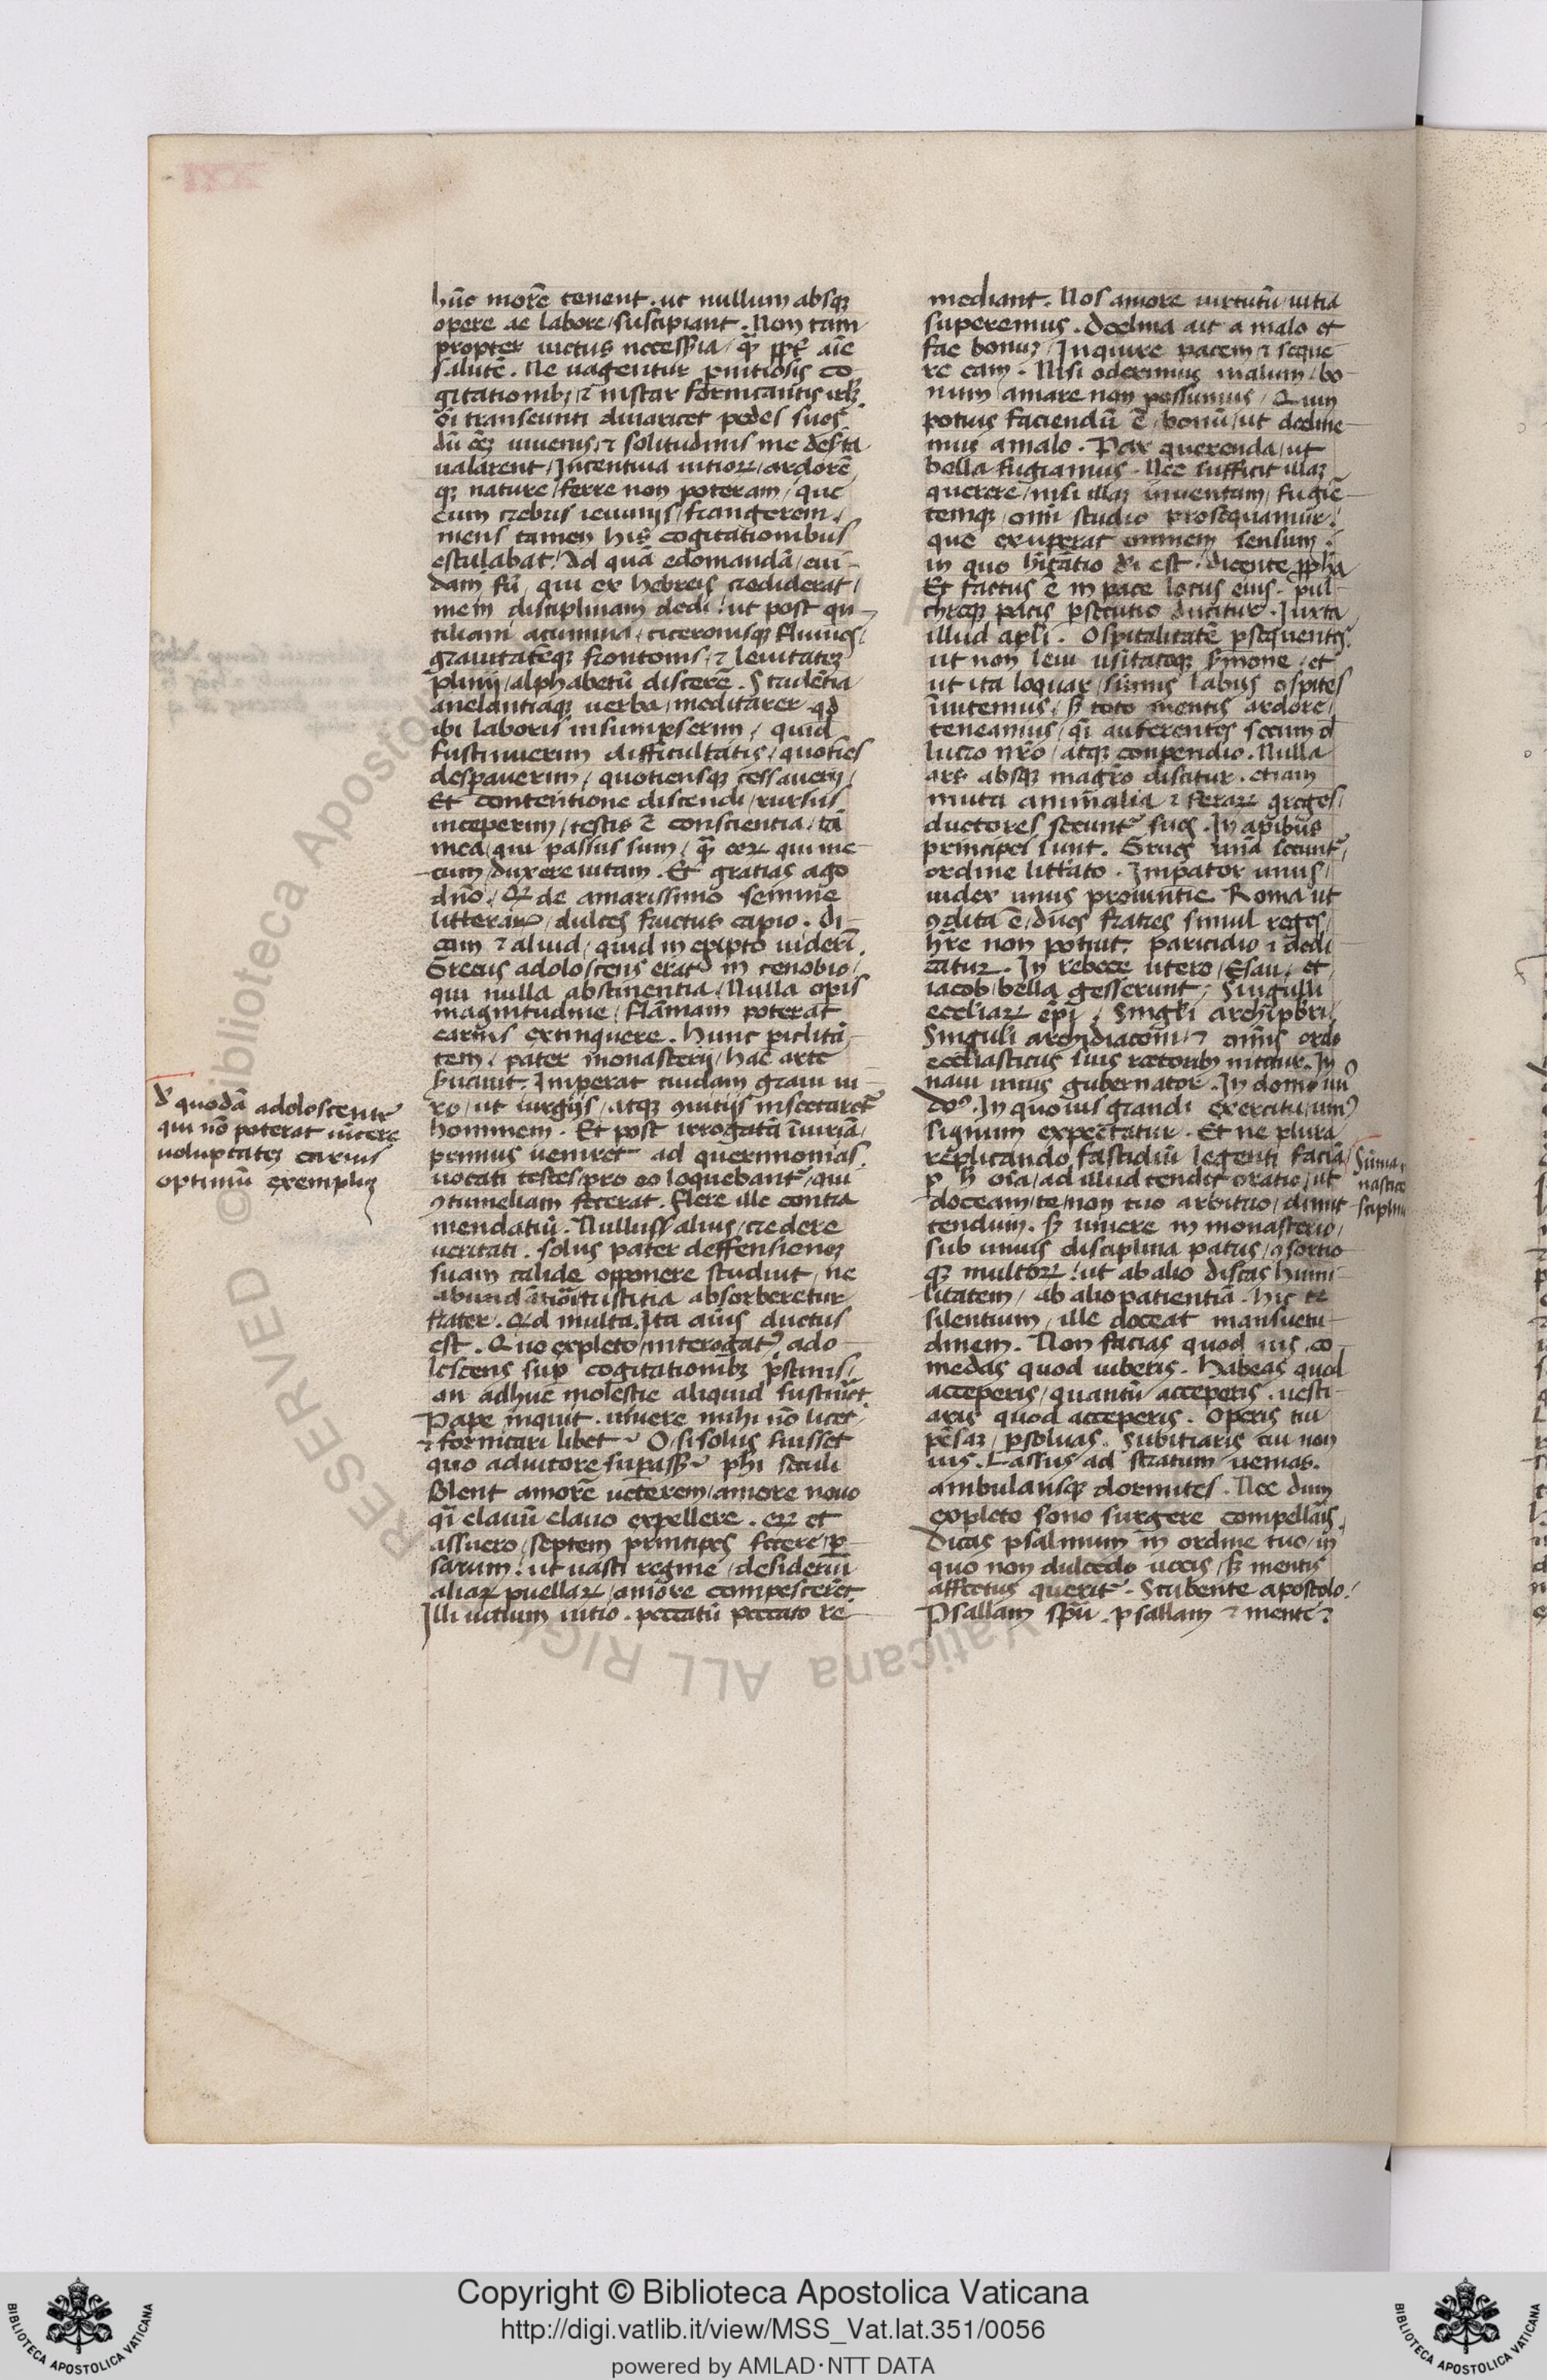 hūc morē tenent. ut nullum absqꝫ
opere ac labore/suscipiant. Non tam
propter uictus necessia/ qꝫ ꝓpt̄ aīe
salutē. Ne uagentur ꝑnitiosis co-
gitationibꝫ/⁊ instar fornicantis irlꝫ
oi transeunti diuaricet pedes suos.
dū eēꝫ iuuenis/⁊ solitudinis me deserta
uallarent/Incentiua uitioꝝ/ardorē
qꝫ nature/ferre non poteram/que
cum crebris ieiunijs/frangerem/
mens tamen his cogitationibus
estuabat/Ad quā edomandā/cui-
dam fr̄i, qui ex hebreis crediderat/
mem disciplinam dedi/ut post qui-
tiliani acumina/ciceronisqꝫ fluuios/
grauitatēqꝫ frontonis/⁊ lenitatēꝫ
plinij/alphabetū discerē. Studētia
anelantiaqꝫ uerba/meditarer. qd
ibi laboris insumpserim/ quid
sustinuerim difficultatis/quoties
despauerim/ quotiensqꝫ cessauerij/
Et contentione discendi/rursus
inceperim/testis ē conscientia/tā
mea/qui passus sum/ qꝫ eoꝝ qui me-
cum/duxere uitam. Et gratias ago
dn̄o. Qꝫ de amarissimo semine
litteraꝝ/dulces fructus capio. di-
cam ⁊ aliud/quid in egipto uiderī.
Grecus adoloscens erat in cenobio/
qui nulla abstinentia/Nulla opis
magnitudine/flāmam poterat
carnis extinguere. hunc piclitā-
tem/ pater monasterij/hac arte
seruauit. Imperat cuidam graui ui-
ro/ut iurgijs/atqꝫ ꝯuitijs insectaret᷑
hominem. Et post irrogatā īiuriā/
primus ueniret ad querimonias.
uocati testes/pro eo loquebant᷑/qui
ꝯtumeliam fecerat. flere ille contra
mendatiū. Nullusqꝫ alius/credere
ueritati. solus pater deffensionēꝫ
suam calide opponere studuit/ne
abund ātiōi tristitia absorberetur
frater. Qd multa. Ita ānus ductus
est. Quo expleto/interogat᷑ ado-
lescens sup̄ cogitationibꝫ p̄stinis/
an adhuc molestie aliquid sustin̄et.
Pape inquit. uiuere mihi nō licet/
⁊ fornicari libet? O/si solus fuisset
quo adiutore supassꝫ? phi seculi
solent amorē ueterem/amore nouo
qī clauū clauo expellere. Qꝫ et
assuero/septem principes fecere/ꝑ-
sarum/ut uasti regine/desideriū
aliaꝝ puellaꝝ/amore compescerēt
Illi uitium uitio. peccatū peccato re-
d' quodā adoloscente
qui nō poterat uīcere
uoluptatēꝫ carnis
optimū exempluꝫ
mediant. Nos amore uirtutū/uitia
superemus. declina ait a malo et
fac bonuꝫ/Inquire pacem ⁊ seque-
re eam. Nisi oderimus malum/bo-
num amare non possumus/ Quin
potius faciendū ē/bonū/ut decline-
mus a malo. Pax querenda/ut
bella fugiamus. Nec sufficit illaꝫ
querere/nisi illaꝫ inuentam/fugiē-
temqꝫ/omī studio prosequamur/
que exuperat omnem sensum/
in quo hītatio dī est. dicente ꝓpha
Et factus ē in pace locus eius. pul-
chreqꝫ pacis ꝑsecutio dicitur. Iuxta
illud apl̄i. Ospitalitatē ꝑsequentes
ut non leui usitatoqꝫ sermone/et
ut ita loquar/sūmis labijs ospites
īuitemus/sꝫ toto mentis ardore/
teneamus/qī auferentes secum d'
lucro nr̄o/atqꝫ conpendio. Nulla
ars absqꝫ magr̄o discitur. etiam
muta animalia ⁊ feraꝝ greges/
ductores secunt᷑ suos. In apibus
principes sunt. Grues unā secunt᷑/
ordine litterato. Imperator unus/
iudex unus prouintie. Roma ut
ꝯdita ē/duos fratres simul reges/
hr̄e non potuit/ paricidio ⁊ dedi-
catur. In rebece utero/Esau/ et
iacob/bella gesserunt/ Singulj
eccliaꝝ ep̄i/ Singl̄i archip̄bri/
Singuli archidiaconi/⁊ omīs ordo
ecclesiasticus suis rectoribꝫ nititur. In
naui unus gubernator. In domo un᷒
dō᷒. In quouis grandi exercitu/un᷒
signum expectatur. Et ne plura
replicando fastidiū legenti faciā/
ꝑ h̄ oīa/ad illud tendit oratio/ut
doceam/te/non tuo arbitrio/dimit-
tendum. sꝫ uiuere in monasterio/
sub unius disciplina patris/ꝯsortio
qꝫ multoꝝ/ut ab alio discas humi-
litatem/ ab alio patientiā. hic te
silentium/ille doceat mansuetu-
dinem. Non facias quod uis. co-
medas quod iuberis. habeas quod
acceperis/quantū acceperis. uesti-
aris quod acceperis. Operis tui
pēsaꝫ/ꝑsoluas. Subitiaris cui non
uis. Lassus ad stratum uenias.
ambulansqꝫ dormites. Nec dum
expleto sono surgere compellaris.
Dicas psalmum in ordine tuo/in
quo non dulcedo uocis/sꝫ mentis
affectus querit᷑. Scribente apostolo/
Psallam spū. psallam ⁊ mente/
Copyright © Biblioteca Apostolica Vaticana
http://digi.vatlib.it/view/MSS_Vat.lat.351/0056
powered by AMLAD·NTT DATA
BIBLIOTECA APOSTOLICA VATICANA
BIBLIOTECA APOSTOLICA VATICANA